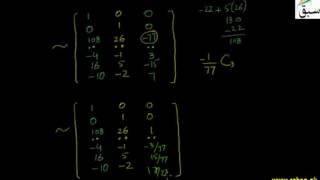 1 0 0
0 1 0
108 26 -77
-4 -1 3
16 5 -15
-10 -2 7
-22 + 5(26)
130
-22
108
-1/77 C₃
1 0 0
0 1 0
108 26 1
-4 -1 -3/77
16 5 15/77
-10 -2
سبق